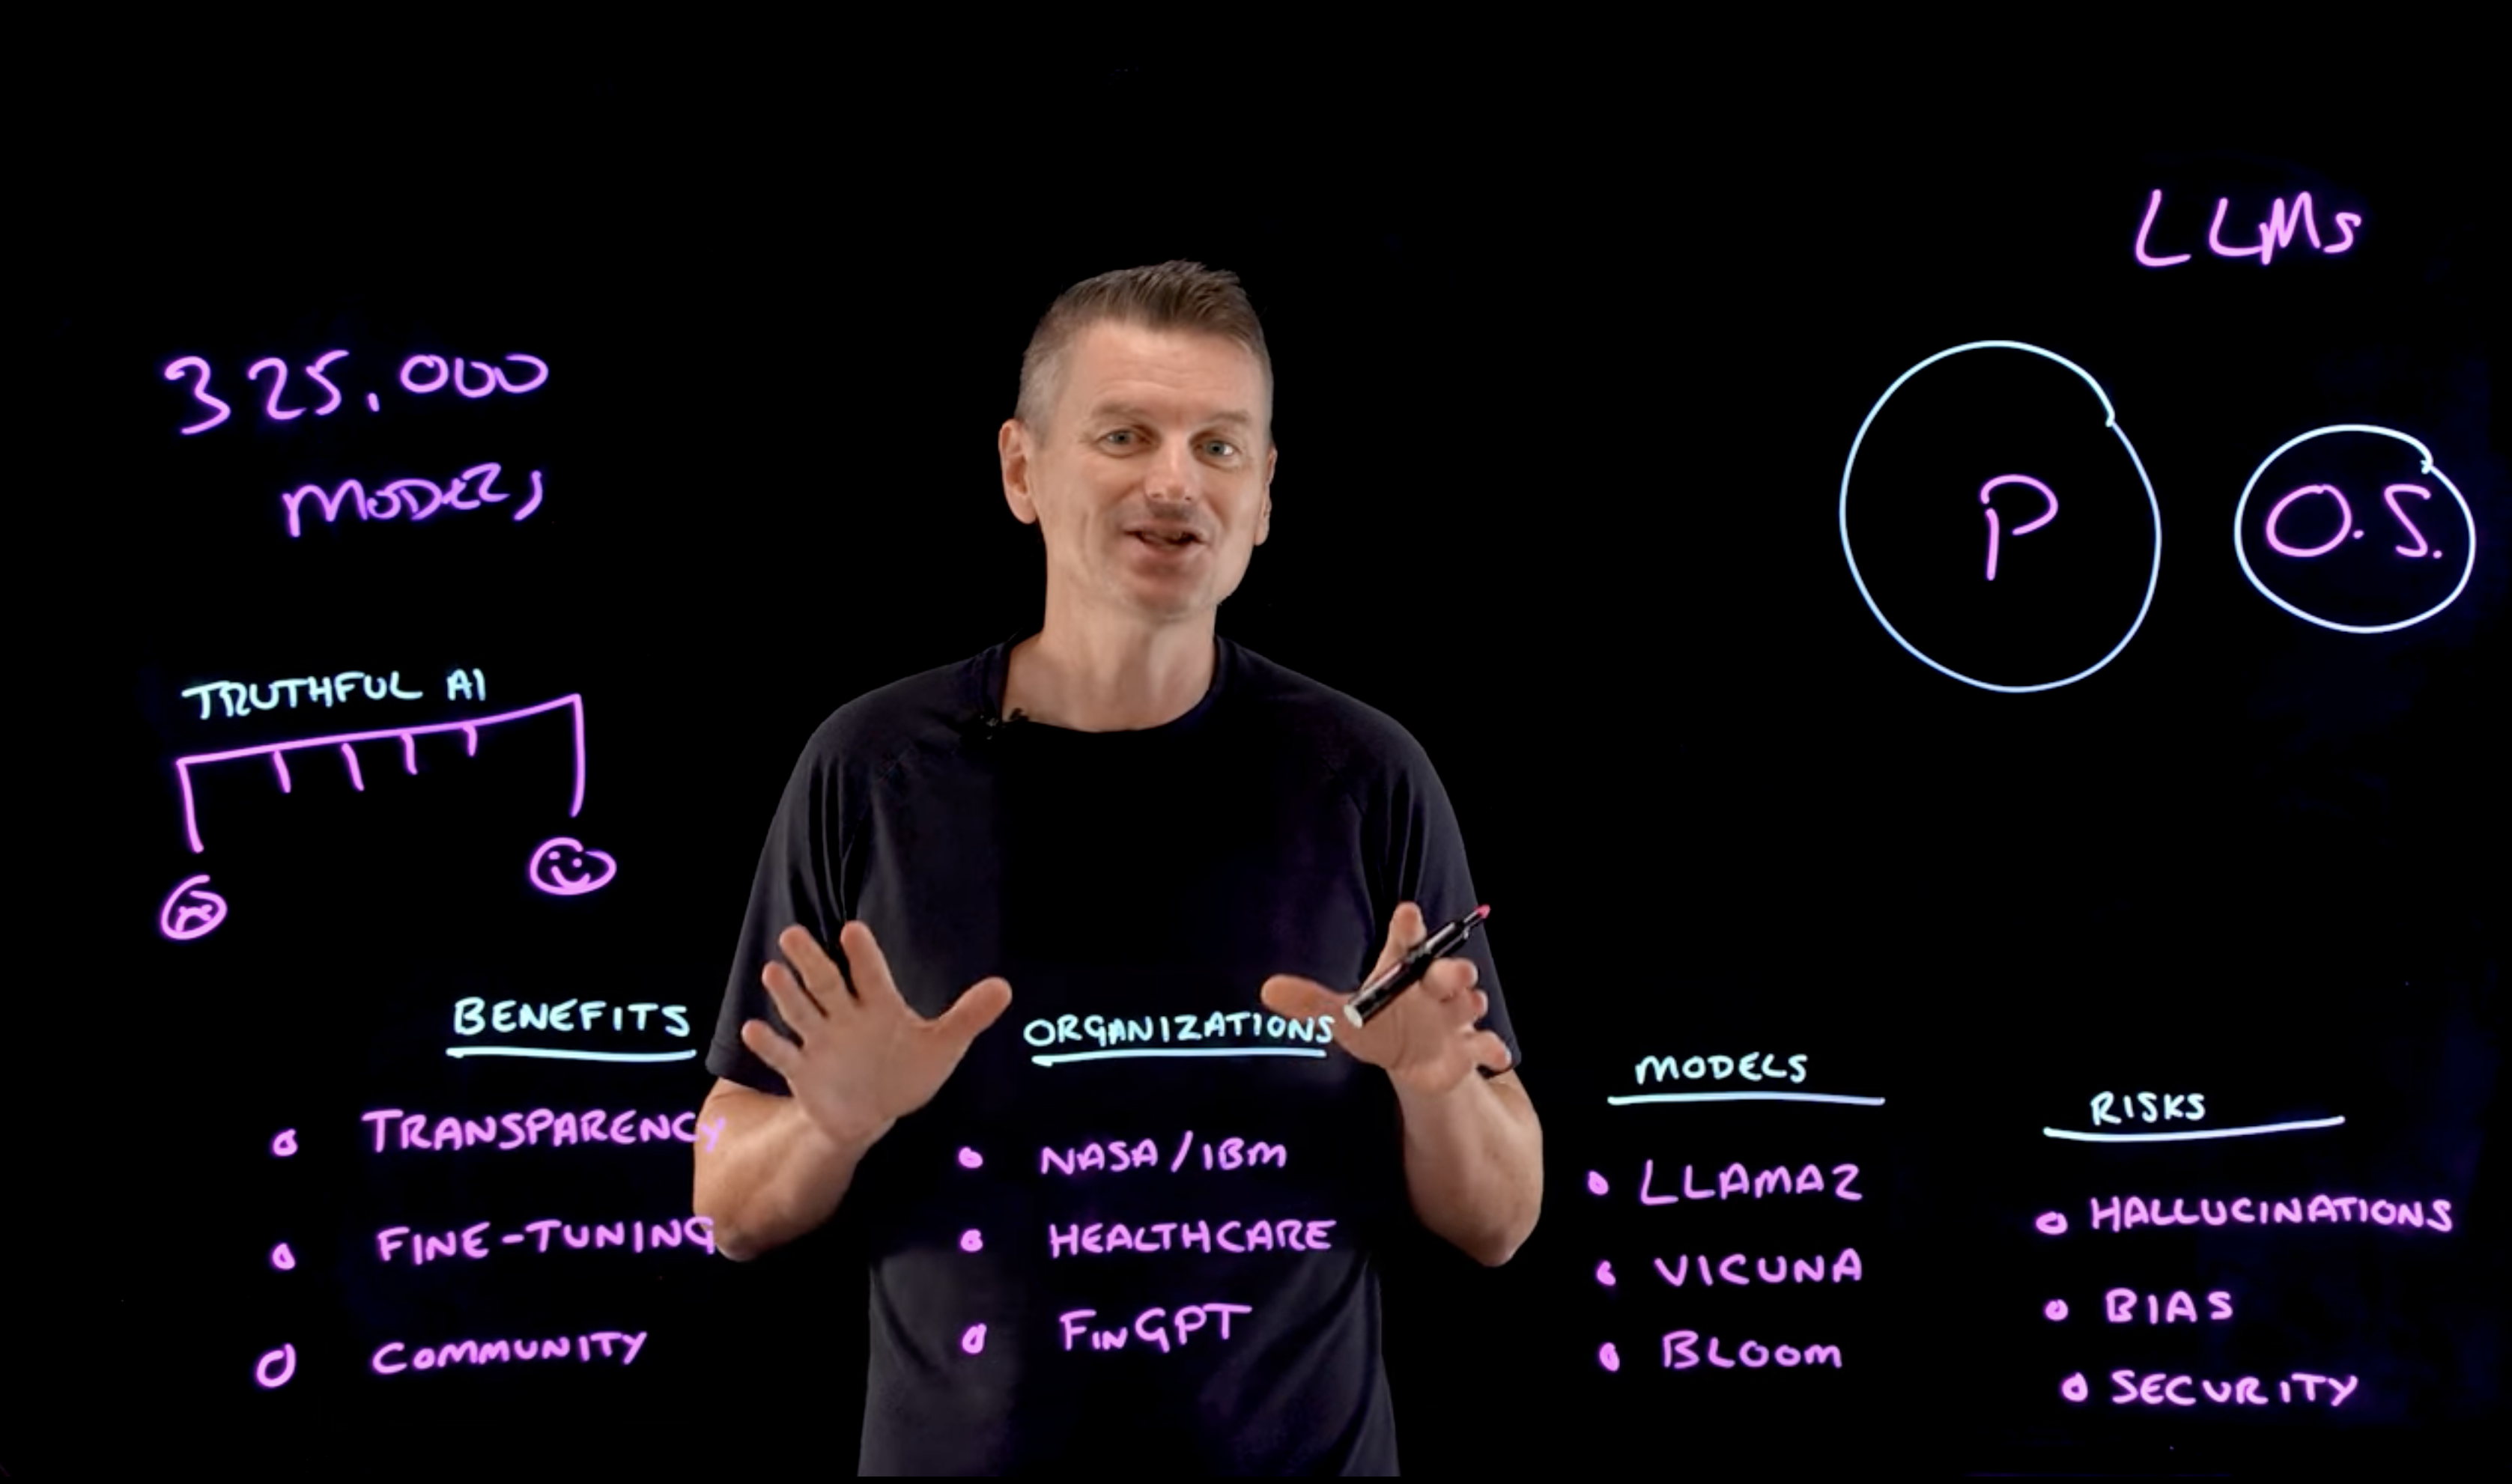 LLMs
325,000
MODELS
P
O.S.
TRUTHFUL AI
BENEFITS
TRANSPARENCY
FINE-TUNING
COMMUNITY
ORGANIZATIONS
NASA/IBM
HEALTHCARE
FINGPT
MODELS
LLAMA2
VICUNA
BLOOM
RISKS
HALLUCINATIONS
BIAS
SECURITY